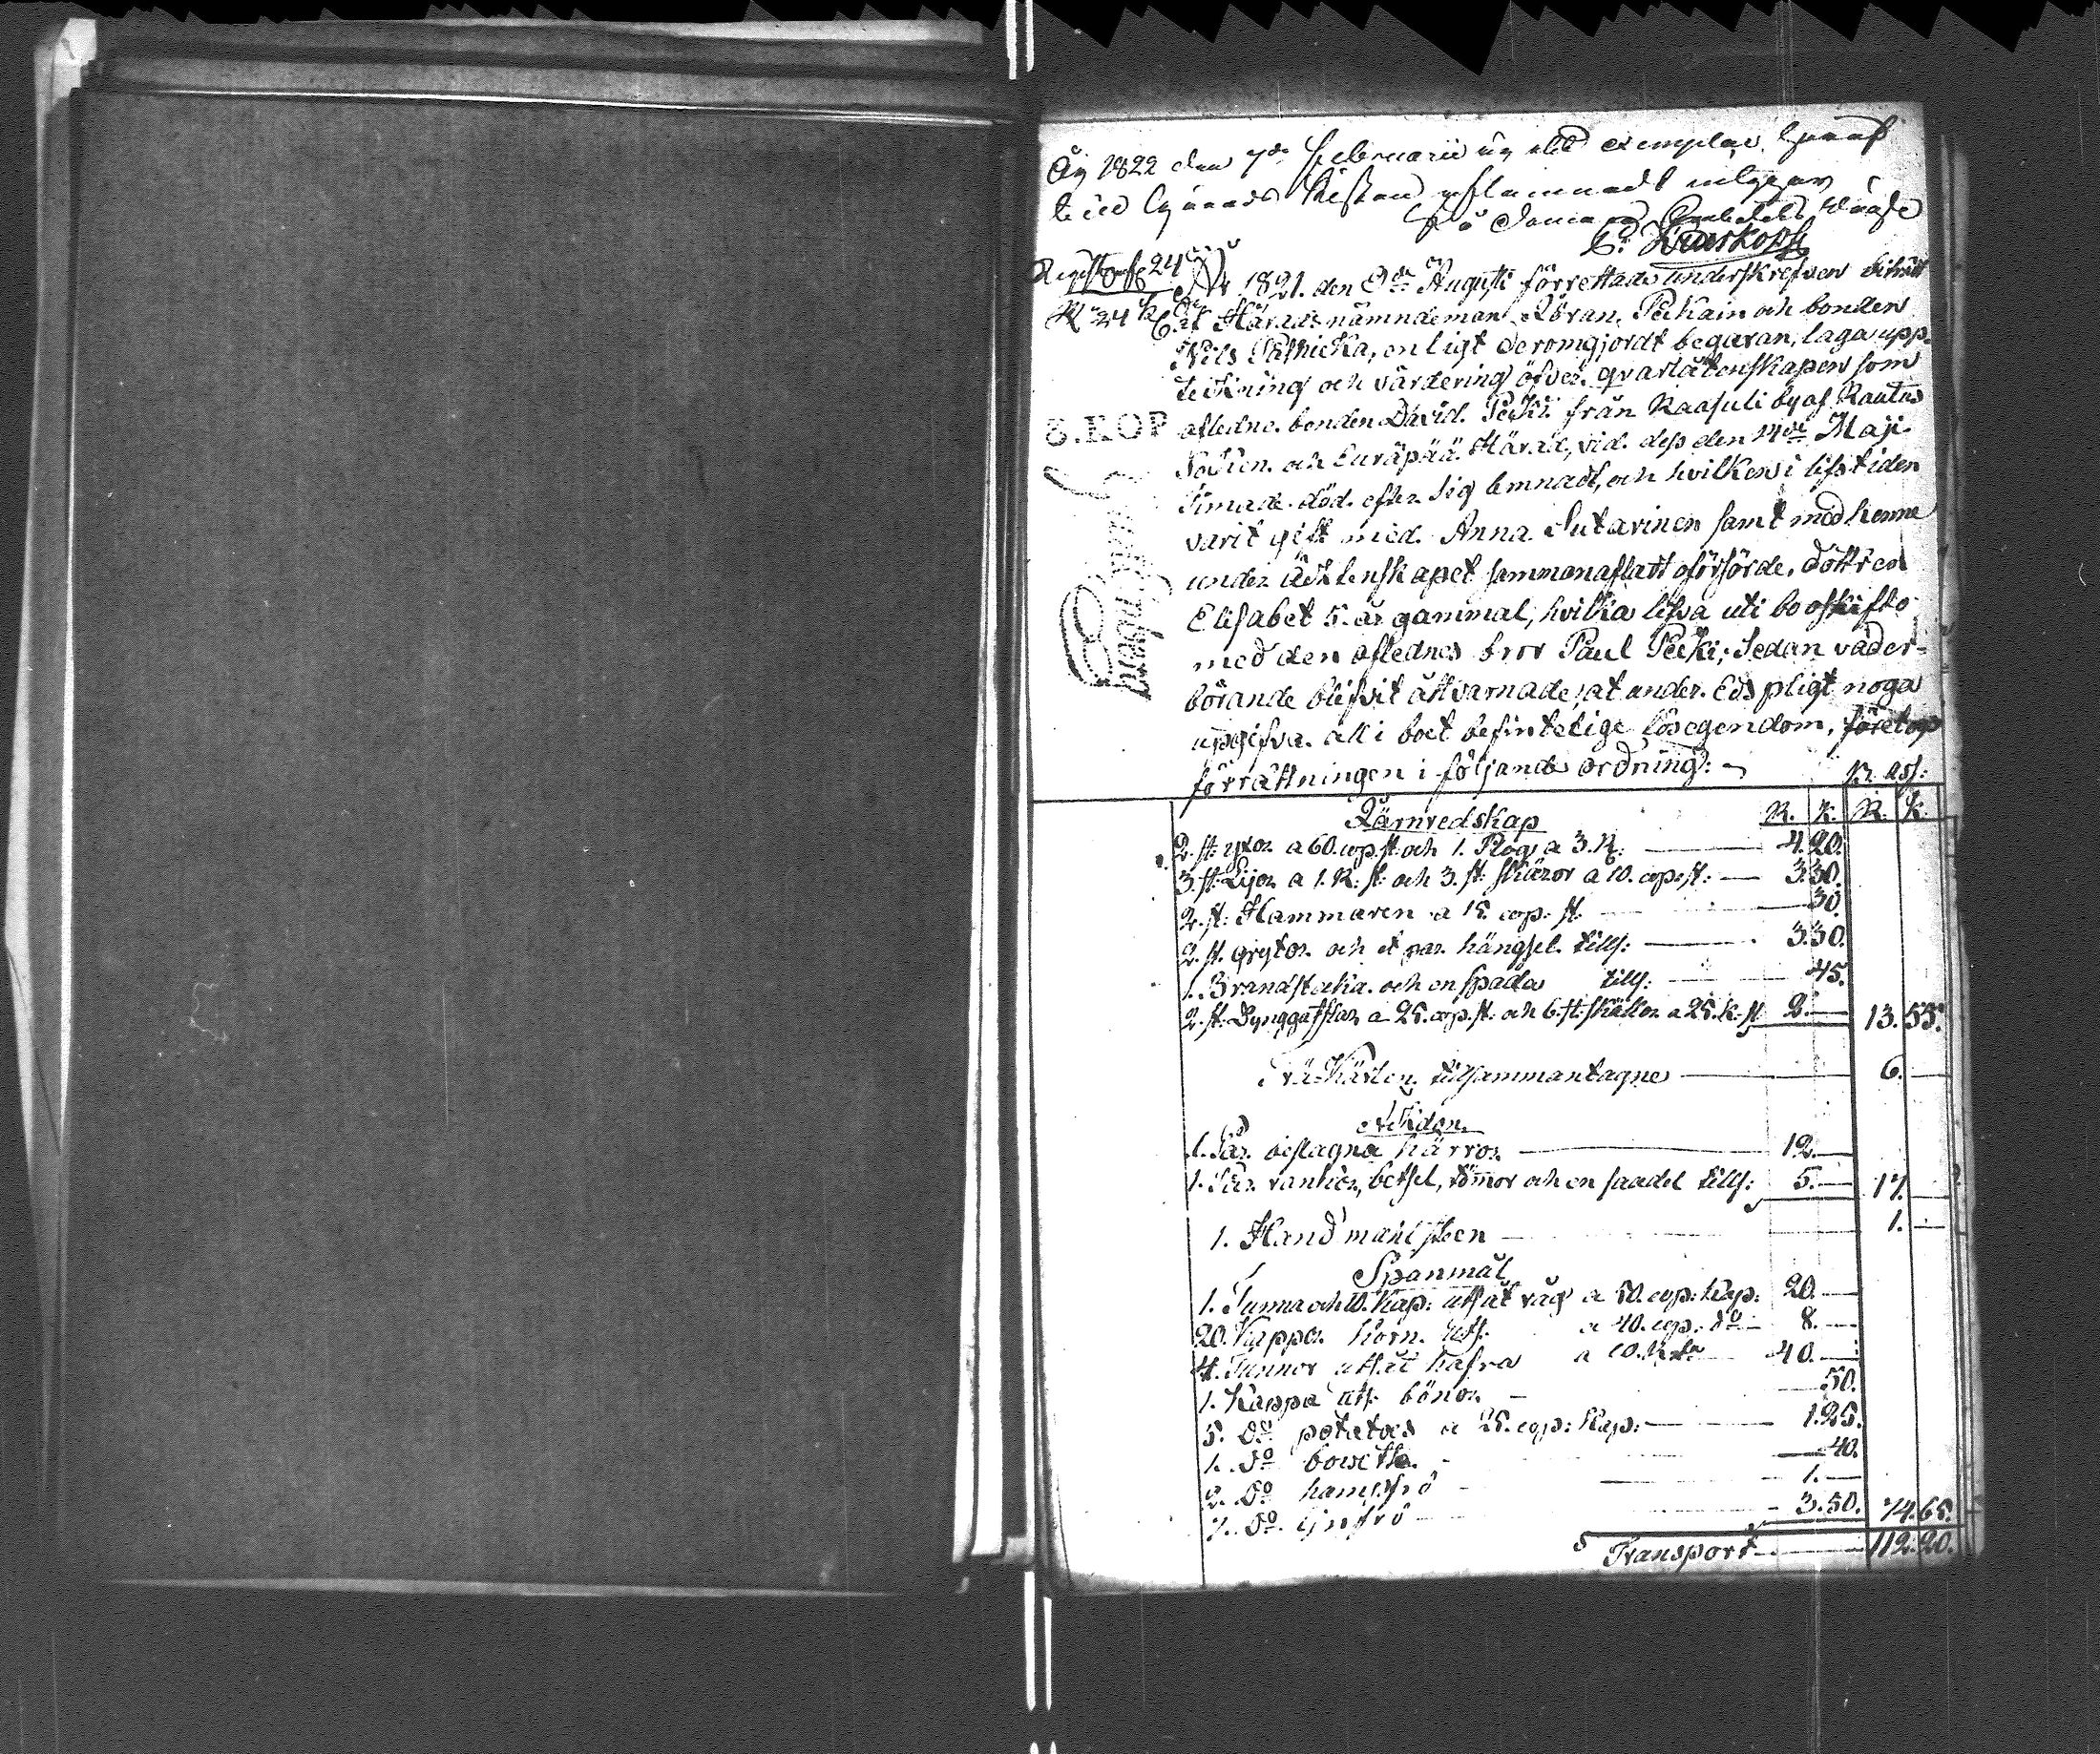 År 1822 den 7de Februarii är ett exemplar
till
C: Kruskopf
R 24 K 6
8.KOP
År 1821. den 9de Augusti förrettade underskrefven biträdd
af Härads nämndeman Jöran Peikain och bonden
Nils enligt deromgjordt begäran, laga upp-
teckning och värdering öfver qvarlåtenskapen som
afledne bonden David Peiki från Raasuli by af Rautus
Sokn och Euräpää Härad, vid dess den 14de Maji
timade död efter sig lemnadt, och hvilken i lifstiden
varit gift med Anna Sutarinen samt med henne
under ächtenskapet sammanaflatt oförsörde dottren
Elisabet 5. år gammal, hvilka lefva uti bo oskifto
med den aflednes bror Paul Peiki; Sedan veder-
börande blifvit åtvarnade, at under Eds pligt noga
uppgifva all i boet befintelige lösegendom, företogs
förrättningen i följande ordning:
R. ass:
Järnredskap R. K. R. K.
2. st: yxor a 60. cop. st: och 1. Plog a 3. R: 4.20.
3. st: Lijor a 1. R: st: och 3. st: skäror a 10. cop. st: 3.30.
2. st: Hammaren a 15. cop. st. 30.
2. st. grytor och et par hängsel tills: 3.30.
1. Brandstaka och en spada tills: 45.
2. st: Dynggafflar a 25. cop. st: och 6. st: skällor a 25. k. st 2.— 13.55.
Trä Kärlen tilsammantagne 6.—
Åkdon
1. Par beslagna kärror 12.—
1. Par rankor, betsel, tömor och en saadel tills: 5.— 17.—
1. Hand mahlsteen 1.—
Spanmål
1. Tunna och 10. Kap: utsåt råg a 50. cop: Kap: 20.—
20. Kappar korn uts. a 40. cop. do 8.—
4. Tunnor utsåt hafra a 10. R 40.—
1. Kappa uts: bönor 50.
5. do potatoes a 25. cop: Kap: 1.25.
1. do 40.
2. do hampfrö 1.—
7. do linfrö 3.50. 74.65.
Transport 112.20.